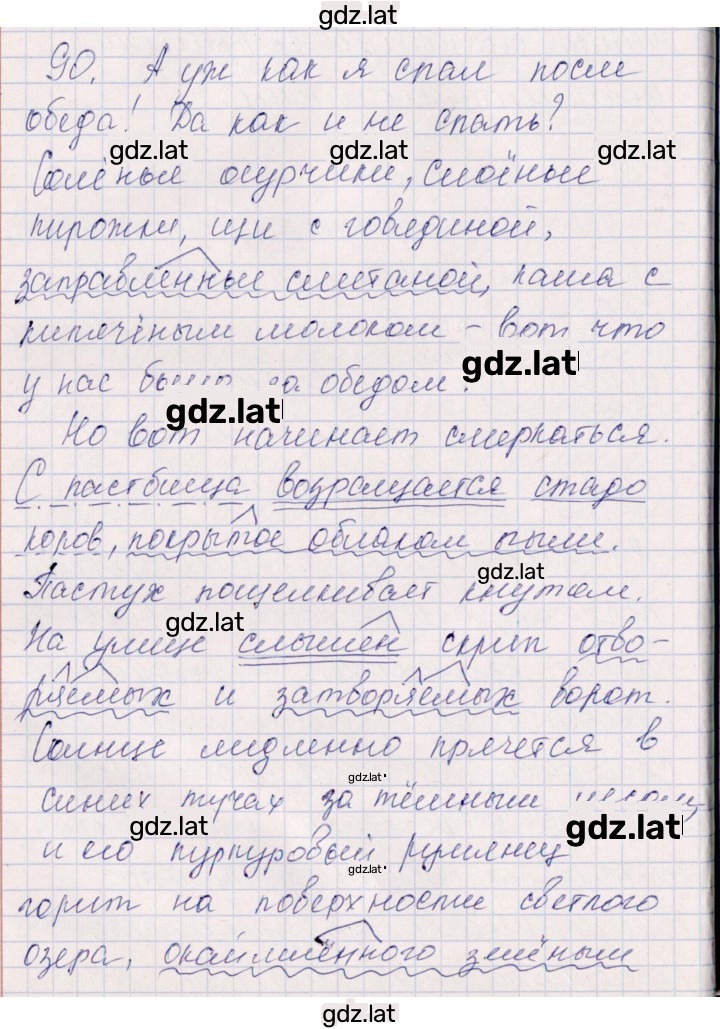 gdz.lat
90. А уж как я спал после
обеда! Да как и не спать?
gdz.lat gdz.lat gdz.lat
Солёные огурчики, слоёные
пирожки, щи с говядиной,
заправленные сметаной, каша с
кипячёным молоком – вот что
gdz.lat
у нас было за обедом!
gdz.lat
Но вот начинает смеркаться.
С пастбища возвращается стадо
коров, покрытое облаком пыли.
gdz.lat
Пастух пощёлкивает кнутом.
gdz.lat
На улице слышен скрип отво-
ряемых и затворяемых ворот.
Солнце медленно прячется в
gdz.lat
синих тучах за тёмным
gdz.lat gdz.lat
и его пурпуровый румянец
gdz.lat
горит на поверхности светлого
озера, окаймлённого зелёным
gdz.lat